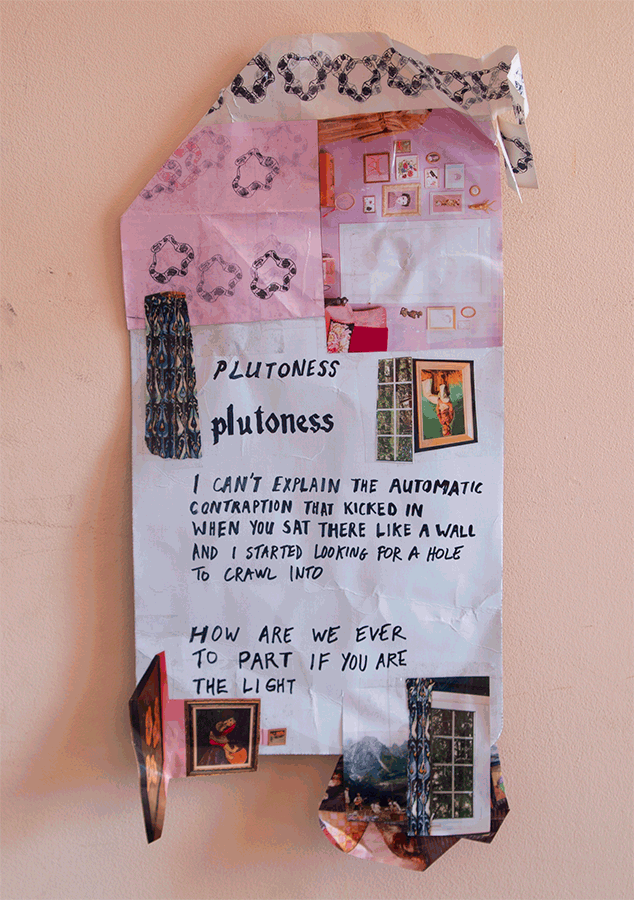 PLUTONESS
plutoness
I CAN'T EXPLAIN THE AUTOMATIC
CONTRAPTION THAT KICKED IN
WHEN YOU SAT THERE LIKE A WALL
AND I STARTED LOOKING FOR A HOLE
TO CRAWL INTO
HOW ARE WE EVER
TO PART IF YOU ARE
THE LIGHT